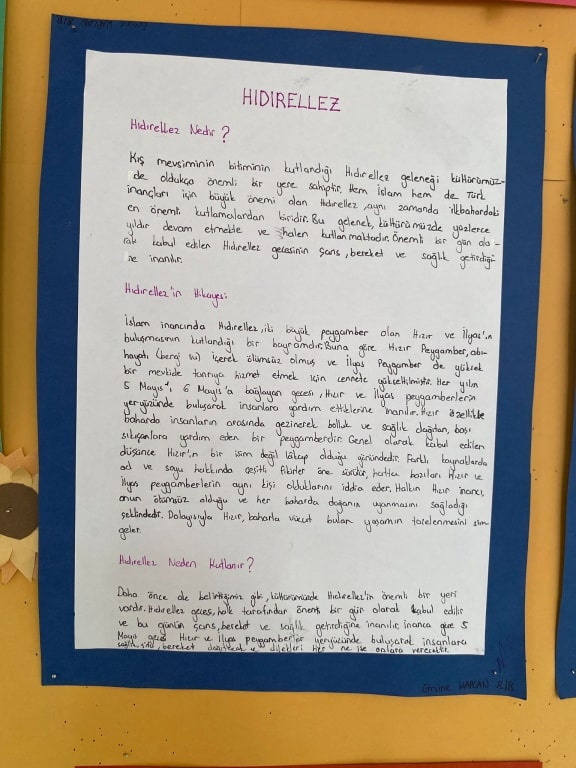 HIDIRELLEZ
Hıdırellez Nedir?
Kış mevsiminin bitiminin kutlandığı Hıdırellez geleneği kültürümüz-
de oldukça önemli bir yere sahiptir. Hem İslam hem de Türk
inançları için büyük önemi olan Hıdırellez, aynı zamanda ilkbahardaki
en önemli kutlamalardan biridir. Bu gelenek, kültürümüzde yüzlerce
yıldır devam etmekte ve halen kutlanmaktadır. Önemli bir gün ola-
rak kabul edilen Hıdırellez gecesinin şans, bereket ve sağlık getirdiği-
ne inanılır.
Hıdırellez'in Hikayesi
İslam inancında Hıdırellez, iki büyük peygamber olan Hızır ve İlyas'ın
buluşmasının kutlandığı bir bayramdır. Buna göre Hızır Peygamber, abı-
hayatı (bengi su) içerek ölümsüz olmuş ve İlyas Peygamber de yüksek
bir mevkide tanrıya hizmet etmek için cennete yükseltilmiştir. Her yılın
5 Mayıs'ı 6 Mayıs'a bağlayan gecesi, Hızır ve ilyas peygamberlerin
yeryüzünde buluşarak insanlara yardım ettiklerine inanılır. Hızır özellikle
baharda insanların arasında gezinerek bolluk ve sağlık dağıtan, başı
sıkışanlara yardım eden bir peygamberdir. Genel olarak kabul edilen
düşünce Hızır'ın bir isim değil lakap olduğu yönündedir. Farklı kaynaklarda
ad ve soyu hakkında çeşitli fikirler öne sürülür, hatta bazıları Hızır ve
ilyas peygamberlerin aynı kişi olduklarını iddia eder. Halkın Hızır inancı,
onun ölümsüz olduğu ve her baharda doğanın uyanmasını sağladığı
şeklindedir. Dolayısıyla Hızır, baharla vücut bulan yaşamın tazelenmesini sim-
geler.
Hıdırellez Neden Kutlanır?
Daha önce de belirttiğimiz gibi, kültürümüzde Hıdırellez'in önemli bir yeri
vardır. Hıdırellez gecesi, halk tarafından önemli bir gün olarak kabul edilir
ve bu günün şans, bereket ve sağlık getirdiğine inanılır. inanca göre 5
Mayıs gecesi Hızır ve ilyas peygamberler yeryüzünde buluşarak insanlara
sağlık, şifa, bereket dağıtacak ve dilekleri her ne ise onlara verecektir.
Emine 8/B